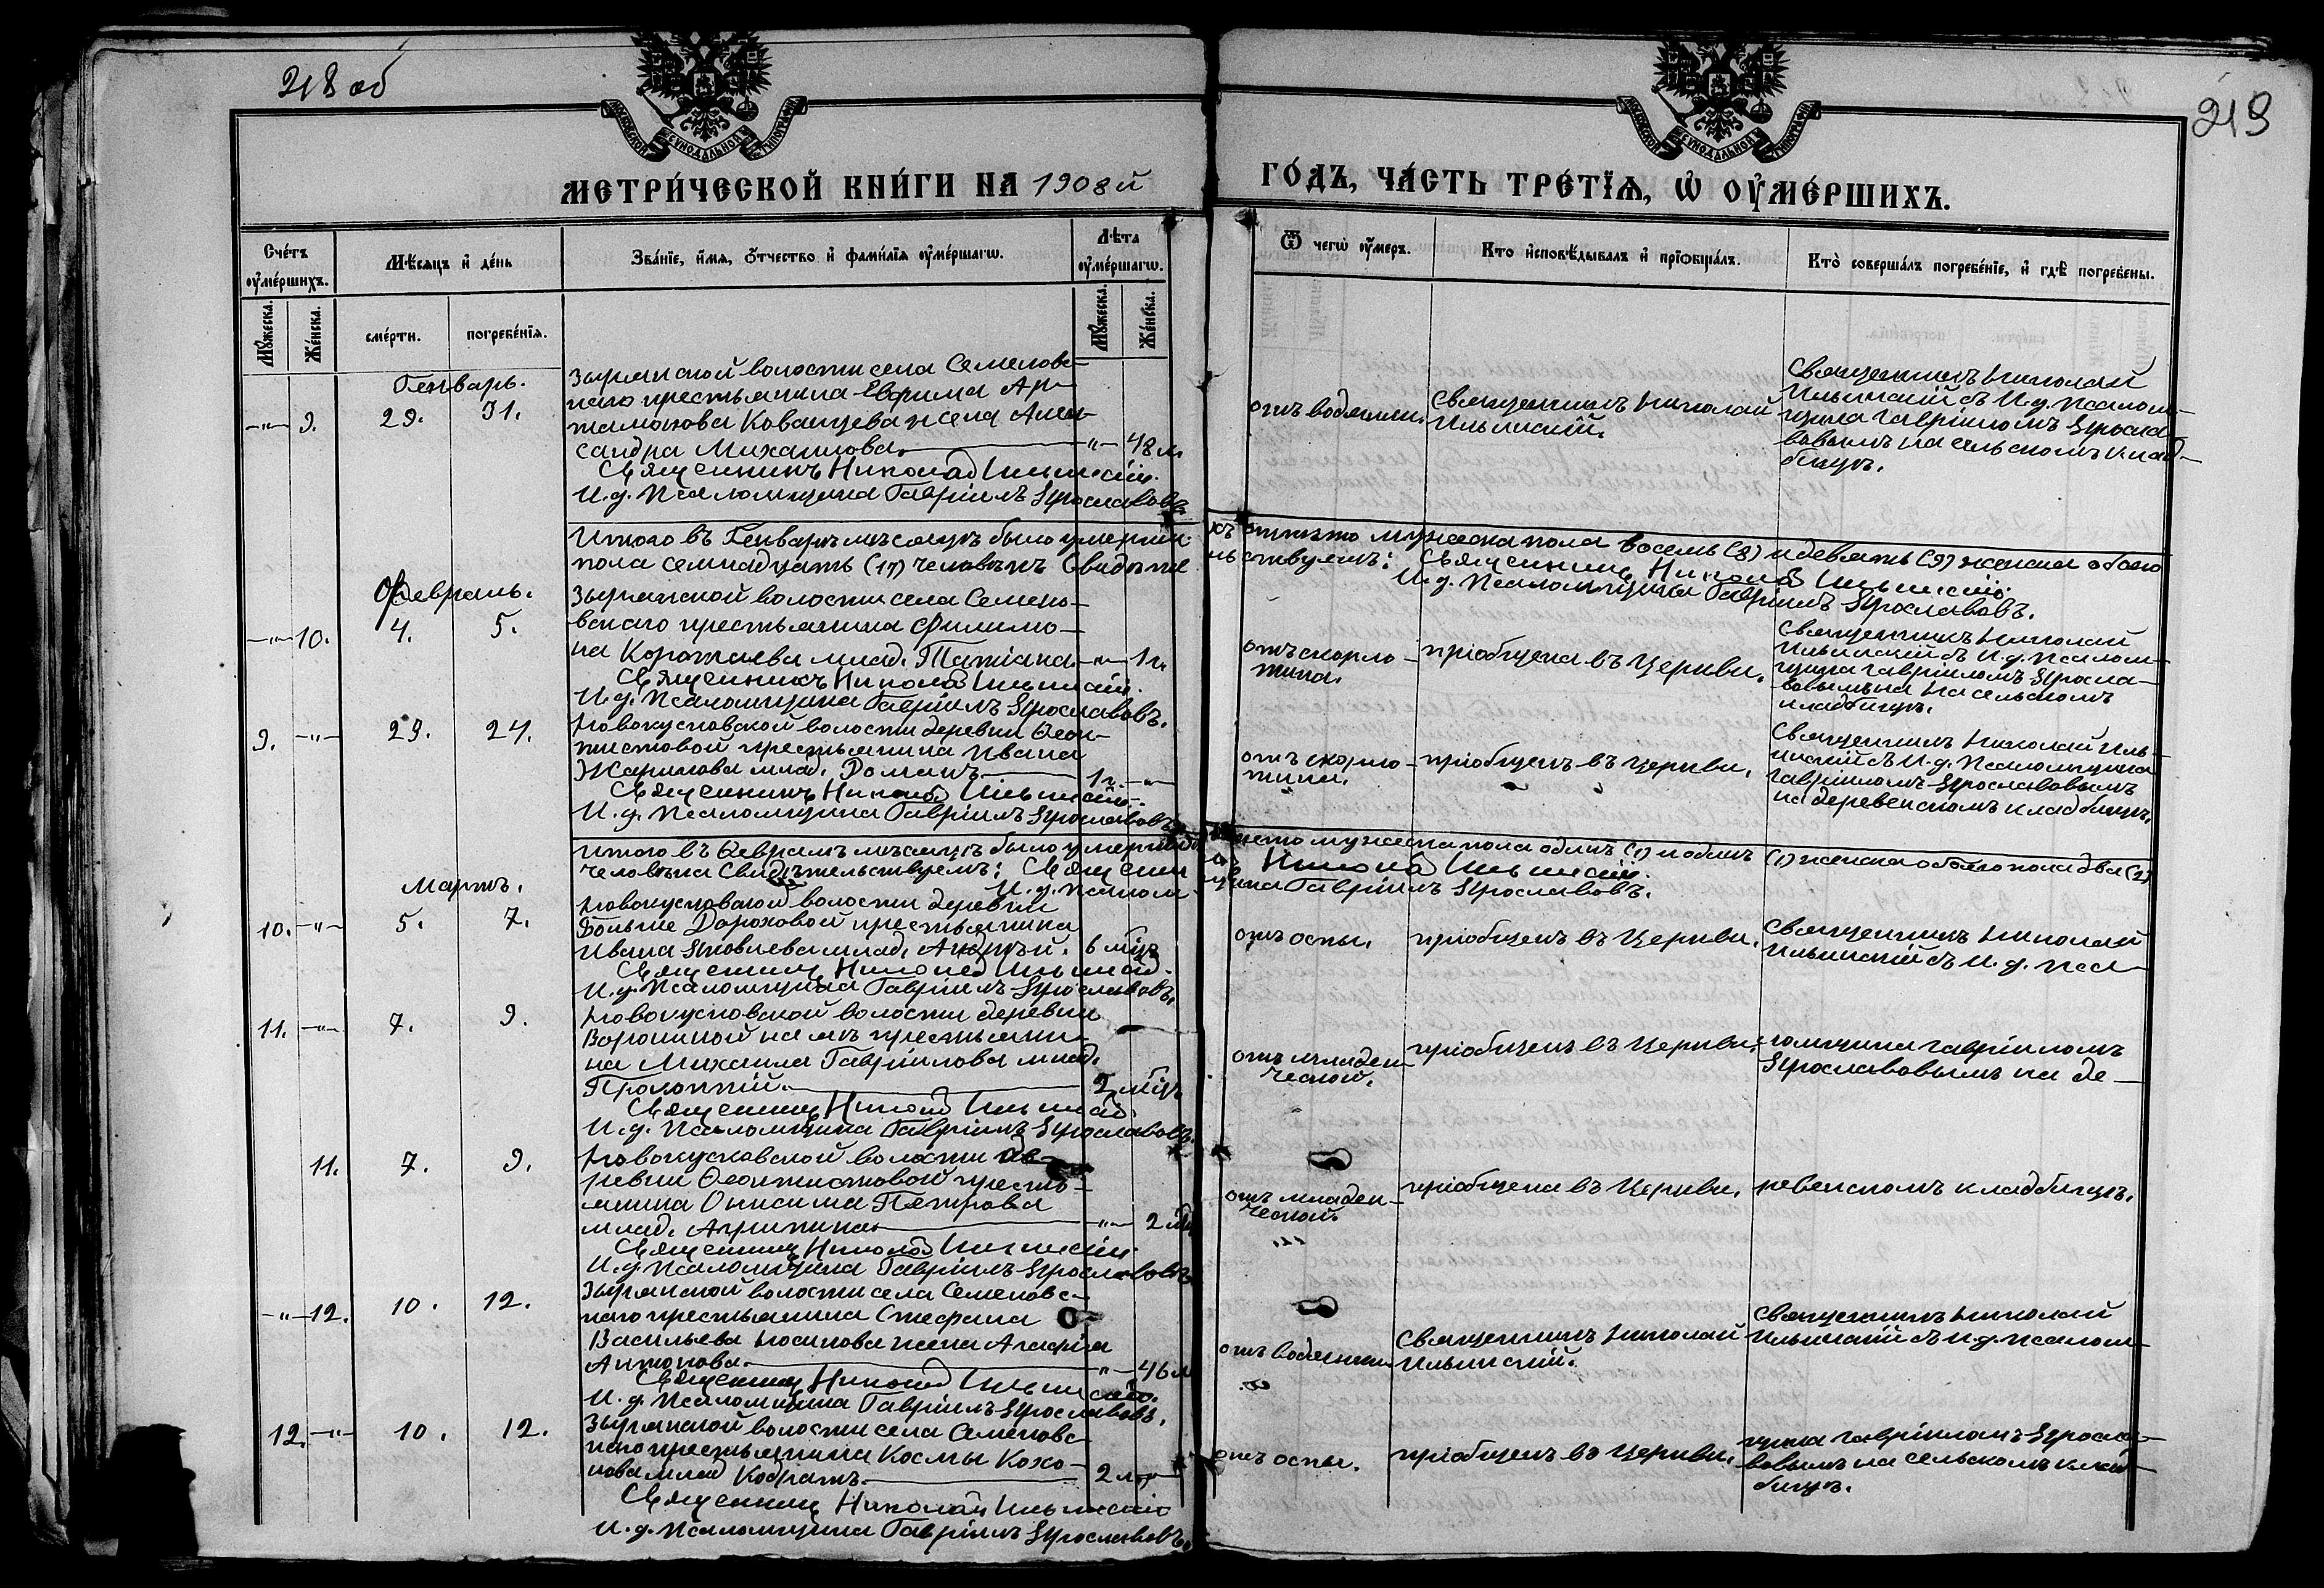 218 об
219
МОСКОВСКОЙ СѴНОДАЛЬНОЙ ТѴПОГРАФІИ
МОСКОВСКОЙ СѴНОДАЛЬНОЙ ТѴПОГРАФІИ
МЕТРИ́ЧЕСКОЙ КНИ́ГИ НА 1908й
ГО́ДЪ, ЧА́СТЬ ТРЕ́ТІѦ, Ѡ҆ ОУ҆МЕ́РШИХЪ.
Сче́тъ оу҆ме́ршихъ.
Мѣ́сяцъ и҆ де́нь
Зва́нїе, и҆́мя, ѻ҆́тчество и҆ фами́лїя оу҆ме́ршагѡ.
Лѣ́та оу҆ме́ршагѡ.
Ѿ чегѡ̀ оу҆́меръ.
Кто̀ и҆сповѣ́дывалъ и҆ прїѡбща́лъ.
Кто̀ соверша́лъ погребе́нїе, и҆ гдѣ̀ погребе́ны.
Мꙋ́жеска.
Же́нска.
сме́рти.
погребе́нїя.
Мꙋ́жеска.
Же́нска.
Генварь.
—"— 9. 29. 31.
Зырянской волости села Семеновс-
каго крестьянина Ефима Ар-
тамонова Кованцева жена Алек-
сандра Михаилова. —"— 48 л.
Священникъ Николай Ильинскій.
И.д. Псаломщика Гавріилъ Ярославовъ.
отъ водянки.
Священникъ Николай
Ильинскій.
Священникъ Николай
Ильинскій съ И.д. Псалом-
щика Гавріиломъ Яросла-
вовымъ на сельскомъ клад-
бищѣ.
Итого въ Генварѣ мѣсяцѣ было умерши- хъ отпѣто мужеска пола восемь (8) и девять (9) женска обоего
пола семнадцать (17) человѣкъ Свидѣтель- ствуемъ: Священникъ Николай Ильинскій.
И.д. Псаломщика Гавріилъ Ярославовъ.
Февраль.
—"— 10. 4. 5.
Зырянской волости села Семено-
вскаго крестьянина Филимо-
на Коротаева млад. Татіана. —"— 1 г.
Священникъ Николай Ильинскій.
И.д. Псаломщика Гавріилъ Ярославовъ.
отъ скарла-
тина.
пріобщена въ Церкви.
Священникъ Николай
Ильинскій съ И.д. Псалом-
щика Гавріиломъ Яросла-
вовымъ на сельскомъ
кладбищѣ.
9. —"— 23. 24.
Новокусковской волости деревни Ѳеок-
тистовой крестьянина Ивана
Жарикова млад. Романъ. 1 г. —"—
Священникъ Николай Ильинскій.
И.д. Псаломщика Гавріилъ Ярославовъ.
отъ скарла-
тини.
пріобщенъ въ Церкви.
Священникъ Николай Иль-
инскій съ И.д. Псаломщика
Гавріиломъ Ярославовымъ
на деревенскомъ кладбищѣ.
Итого въ Ѳевралѣ мѣсяцѣ было умершихъ отпѣто мужеска пола одинъ (1) и одинъ (1) женска обоего пола два (2)
человѣка Свидѣтельствуемъ: Священникъ Николай Ильинскій.
И.д. Псаломщика Гавріилъ Ярославовъ.
Мартъ.
10. —"— 5. 7.
Новокусковской волости деревни
Больше Дороховой крестьянина
Ивана Яковлева млад. Андрей. 6 мѣц.
Священникъ Николай Ильинскій.
И.д. Псаломщика Гавріилъ Ярославовъ.
отъ оспы.
пріобщенъ въ Церкви.
Священникъ Николай
Ильинскій съ И.д. Пса-
11. —"— 7. 9.
Новокусковской волости деревни
Ворониной
крестьяни-
на Михаила Гавріилова млад.
Прокопій. 2 мѣц.
Священникъ Николай Ильинскій.
И.д. Псаломщика Гавріилъ Ярославовъ.
отъ младен-
ческой.
пріобщенъ въ Церкви.
ломщика Гавріиломъ
Ярославовымъ на де-
11. 7. 9.
Новокусковской волости де-
ревни Ѳеоктистовой кресть-
янина Онисима Петрова
млад. Агрипина. —"— 2 мѣц.
Священникъ Николай Ильинскій.
И.д. Псаломщика Гавріилъ Ярославовъ.
отъ младен-
ческой.
пріобщена въ Церкви.
ревенскомъ кладбищѣ.
—"— 12. 10. 12.
Зырянской волости села Семеновс-
каго крестьянина Стефана
Васильева Носинова жена Агафія
Антонова. —"— 46 л.
Священникъ Николай Ильинскій.
И.д. Псаломщика Гавріилъ Ярославовъ.
отъ водянки.
Священникъ Николай
Ильинскій.
Священникъ Николай
Ильинскій съ И.д. Псалом-
12. —"— 10. 12.
Зырянской волости села Семеновс-
каго крестьянина Космы Кохо-
нова млад. Кодратъ. 2 л. —"—
Священникъ Николай Ильинскій
И.д. Псаломщика Гавріилъ Ярославовъ.
отъ оспы.
пріобщенъ въ Церкви.
щика Гавріиломъ Яросла-
вовымъ на сельскомъ клад-
бищѣ.